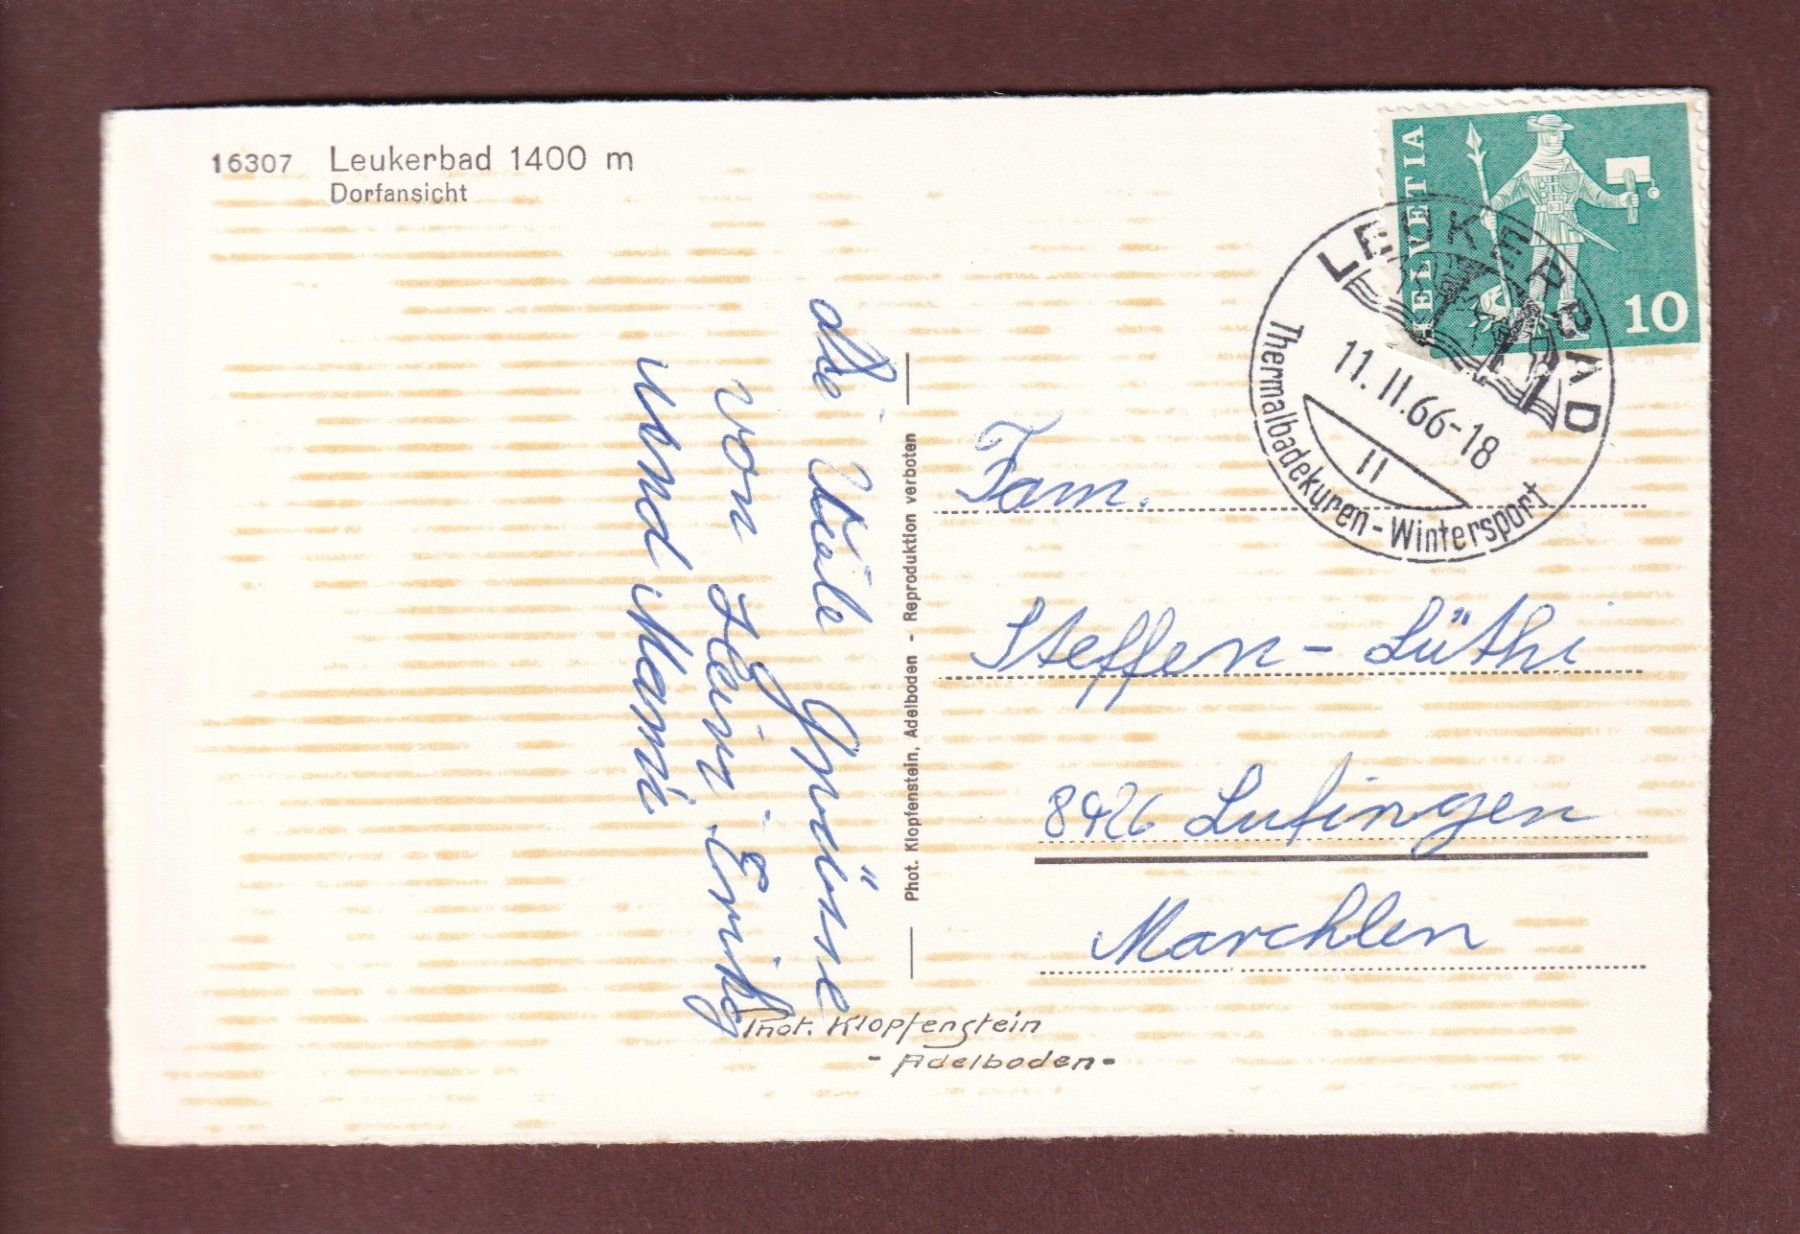 16307 Leukerbad 1400 m
Dorfansicht
HELVETIA
10
LEUKERBAD
11. II. 66-18
II
Thermalbadekuren - Wintersport
Viele Grüsse
von Hein. Emil
und Memi
Phot. Klopfenstein, Adelboden - Reproduktion verboten
Fam.
Steffen - Lüthi
8426 Lufingen
Marchlen
Phot. Klopfenstein
- Adelboden -